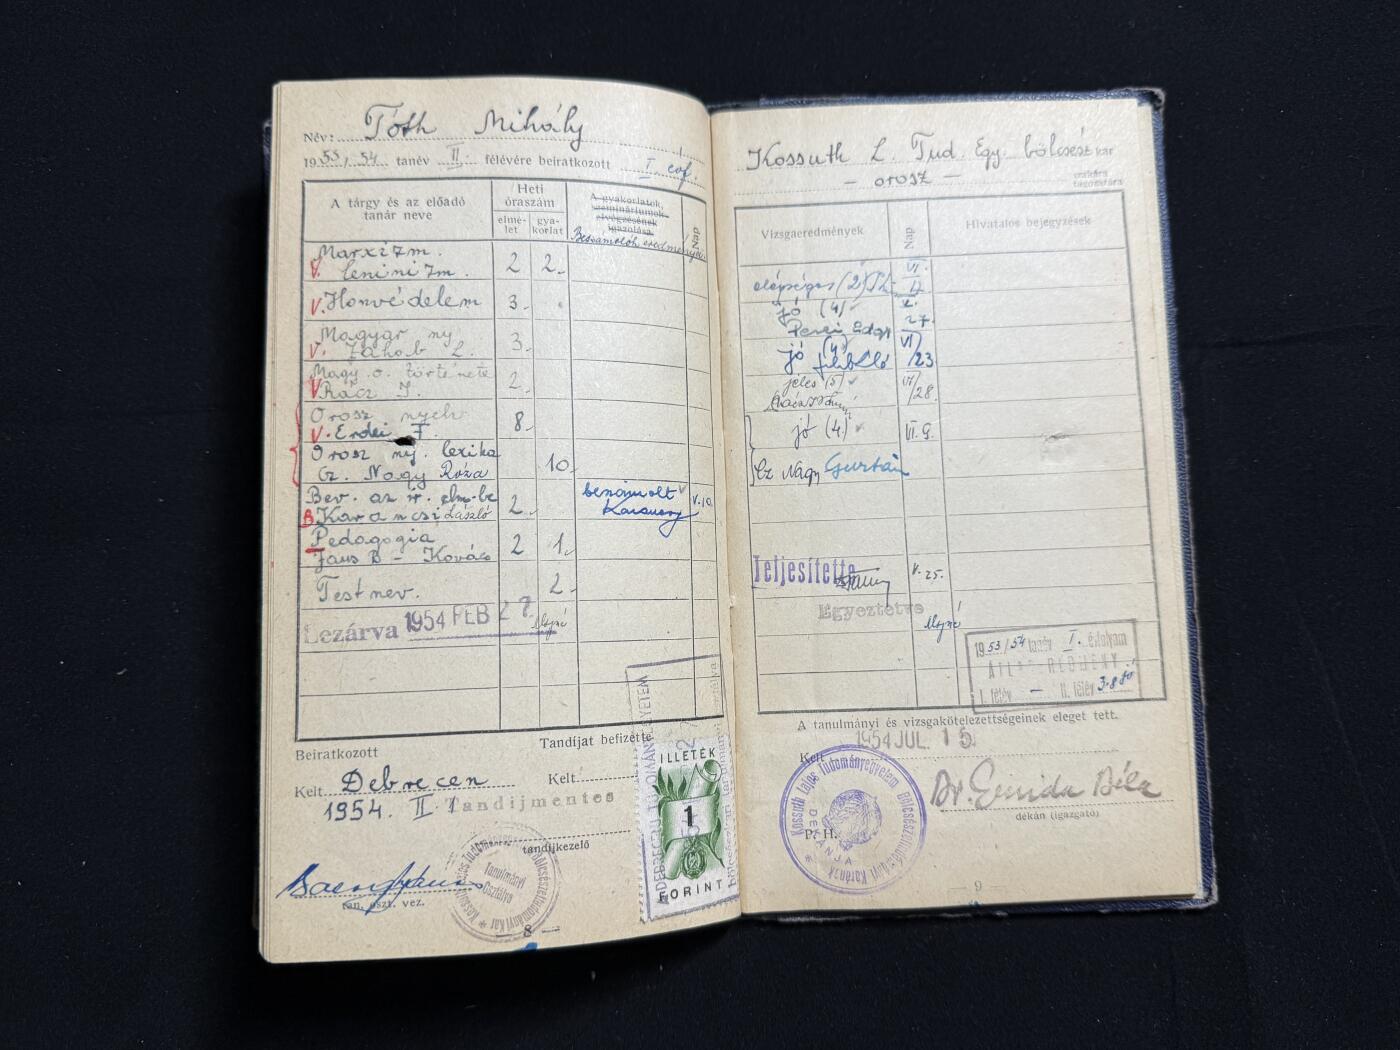 Név: Tóth Mihály
1953/54 tanév II. félévére beiratkozott I. évf.
A tárgy és az előadó tanár neve
Heti óraszám
elmé-let
gya-korlat
A gyakorlatok, szemináriumok elvégzésének igazolása.
Beszámolók eredményei
Nap
Marxizm.
V. leninizm. 2 2
V. Honvédelem 3
Magyar ny.
V. Jakab L. 3
Magy. o. története
V. Rácz I. 2
Orosz nyelv
V. Erdei F. 8
Orosz ny. lexika
Cz. Nagy Róza 10
Bev. az ir. elm-be
B. Karancsi László 2 beszámolt V.10.
Pedagogia
Jaus B - Kovács 2 1
Testnev. 2
Lezárva 1954 FEB 27
Beiratkozott
Tandíjat befizette
Kelt Debrecen
Kelt
1954. II. 1
Tandíjmentes
tandíjkezelő
tan. oszt. vez.
Tanulmányi Osztálya
ILLETÉK
1
FORINT
— 8 —
Kossuth L. Tud. Egy. bölcsész kar
— orosz —
szakára
tagozatára
Vizsgaeredmények
Nap
Hivatalos bejegyzések
elégséges (2)
jó (4) 27.
jó (4) VI/23
jeles (5) /28.
jó (4) VI.9.
Cz Nagy
Teljesítette V.25.
Egyeztetve
1953/54 tanév I. évfolyam
ÁTLAGEREDMÉNY
I. félév — II. félév 3.8
A tanulmányi és vizsgakötelezettségeinek eleget tett.
Kelt 1954 JUL. 15.
Kossuth Lajos Tudományegyetem Bölcsészettudományi Karának
DÉKÁNJA
P. H.
dékán (igazgató)
— 9 —